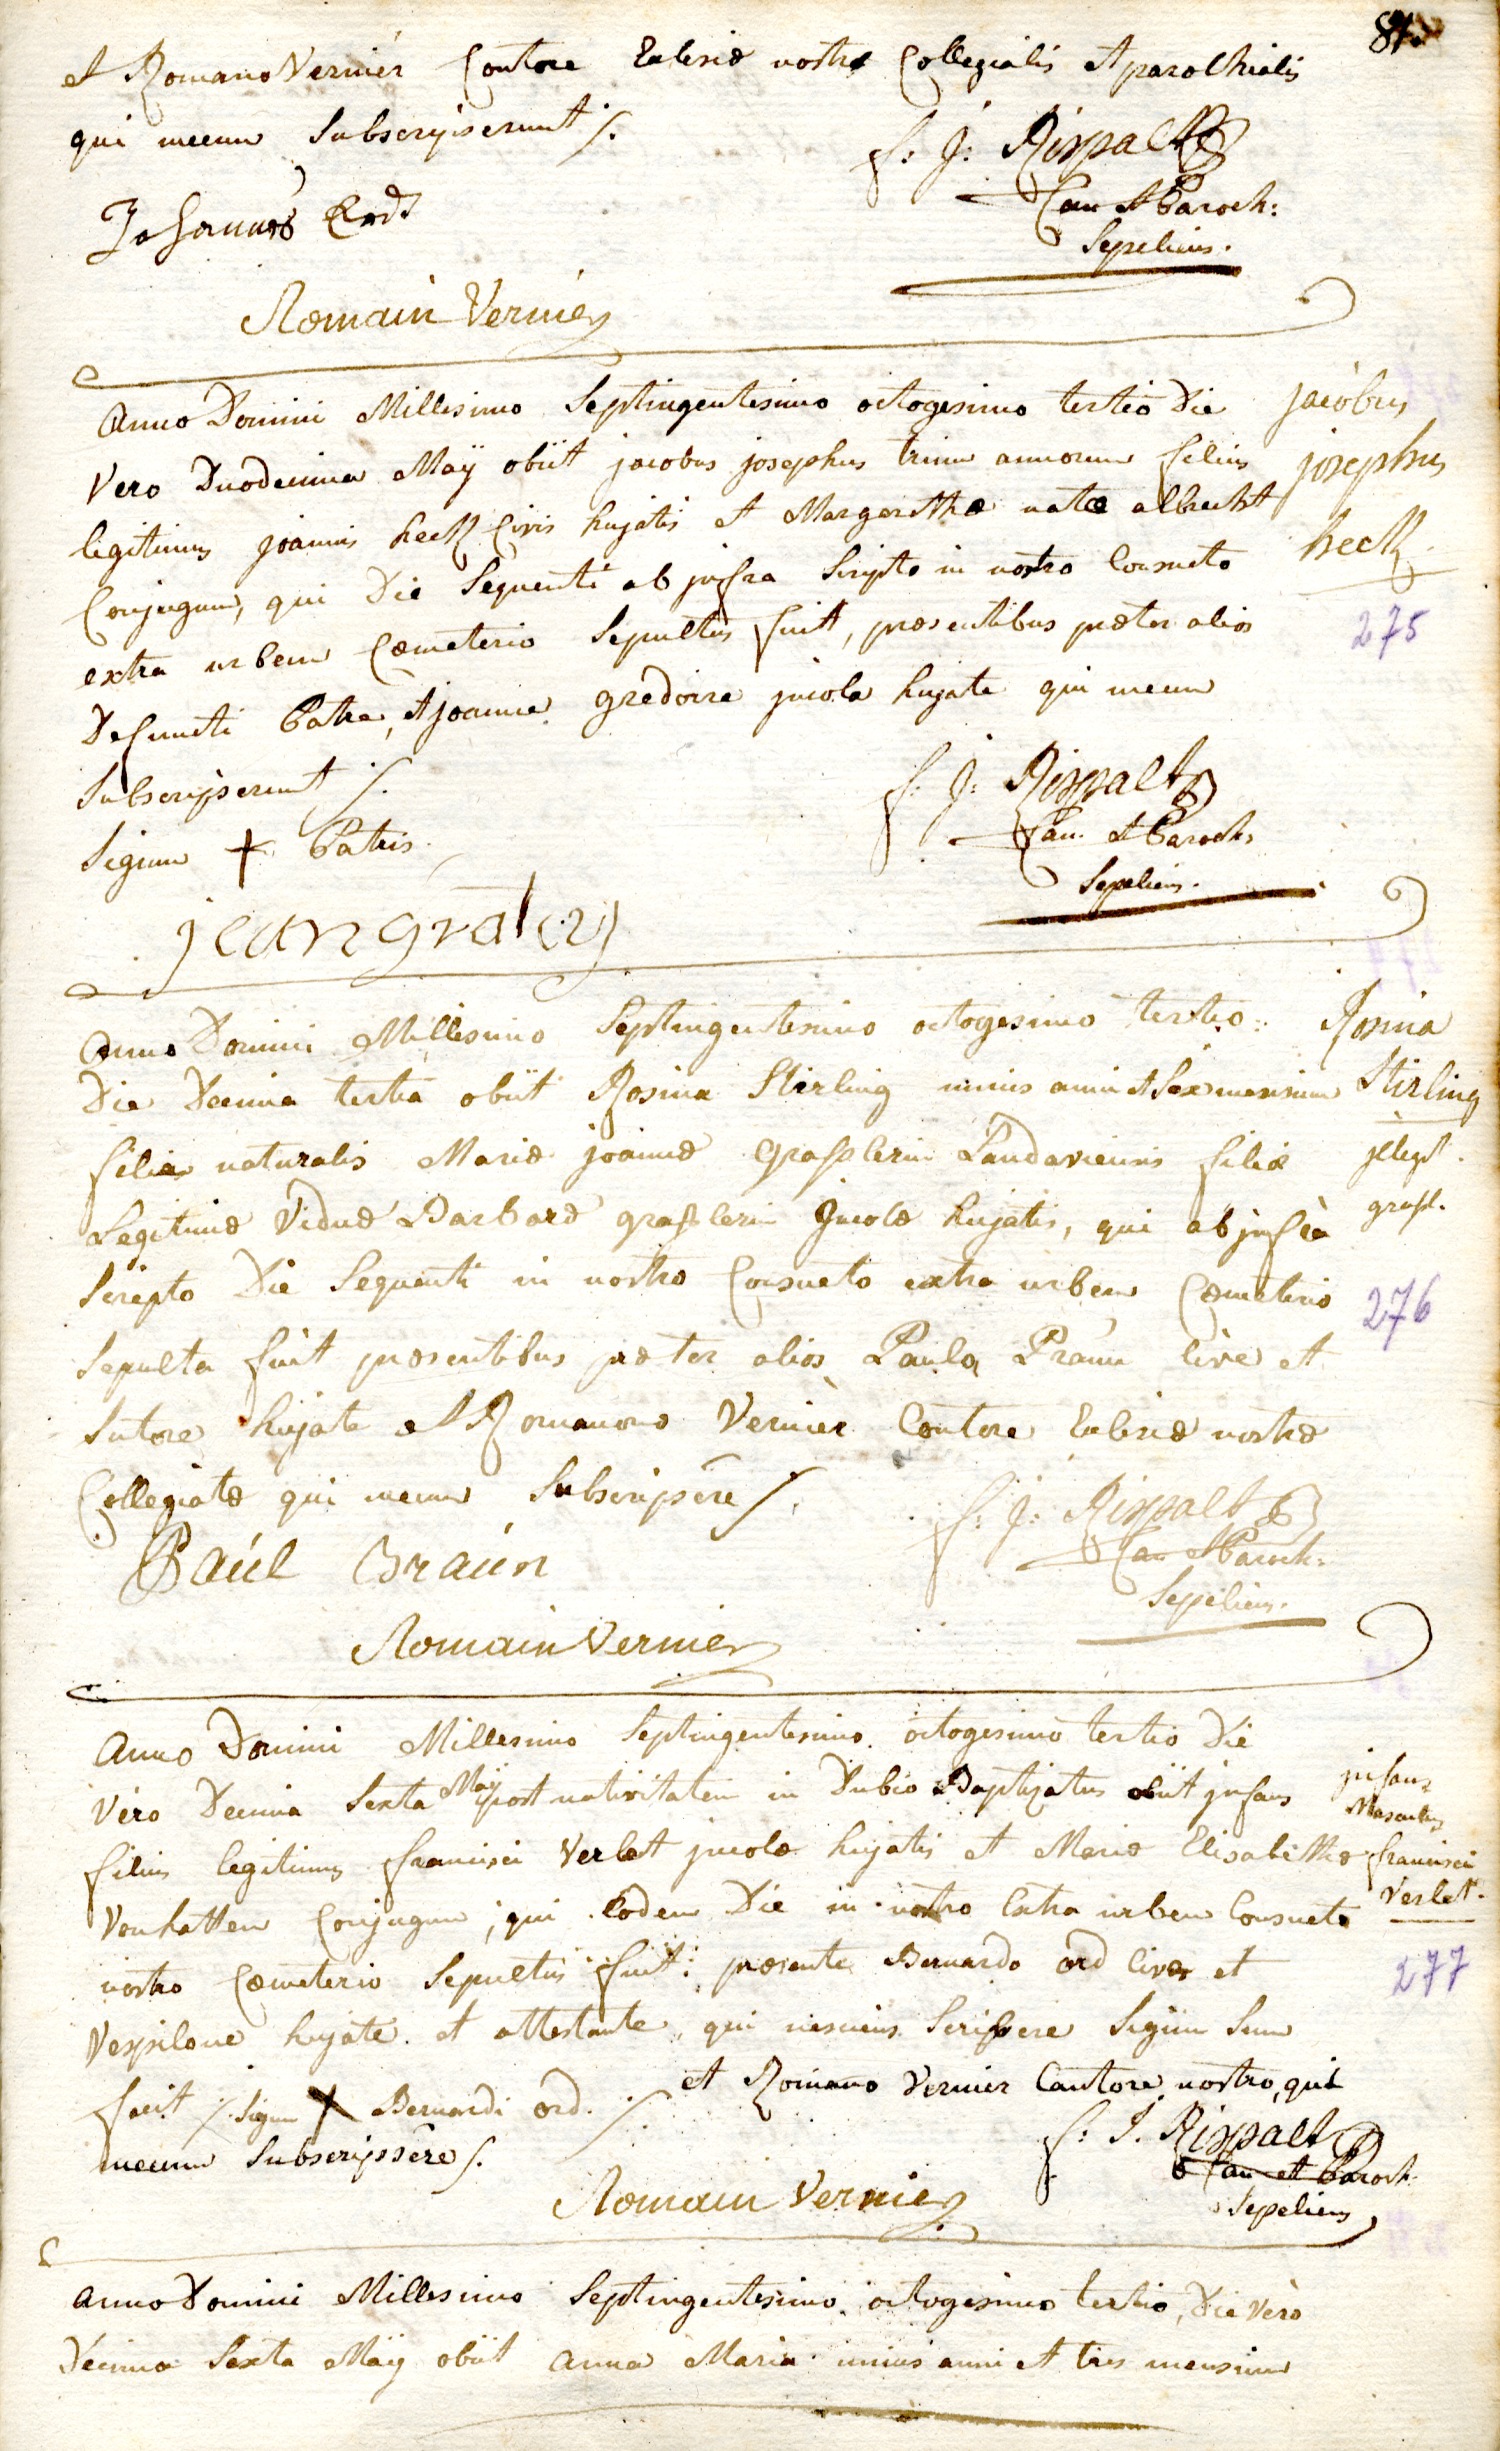 81.
et Romano Vernier Cantore Eclesiæ nostræ Collegialis et parochialis
qui mecum Subscripserunt ./.
f: j: Rispalt
Can et Paroch:
Sepeliens.
Johannes Erd
Romain Vernier
Anno Domini Millesimo Septingentesimo octogesimo tertio Die
Vero Duodecima Maÿ obiit jacobus josephus trium annorum filius
legitimus joannis heck Civis hujatis et Margarethæ natæ albrecht
Conjugum, qui Die Sequenti ab jnfra Scripto in nostro Consueto
extra urbem Cæmeterio Sepultus fuit, præsentibus præter alios
Defuncti Patre, et joanne gredoire jncola hujate qui mecum
Subscripserunt ./.
jacobus
josephus
heck.
275
Signum + Patris.
f: j: Rispalt
Can. et Paroch:
Sepeliens.
jean
Anno Domini Millesimo Septingentesimo octogesimo tertio
Die Decima tertia obiit Rosina Stirling unius anni et Sex mensium
filia naturalis Mariæ joannæ Grasslerin Landaviensis filiæ
Legitimæ Viduæ Barbaræ grasslerin jncolæ hujatis, qui ab jnfra
Scripto Die Sequenti in nostro Consueto extra urbem Cæmeterio
Sepulta fuit præsentibus præter alios Paulo Praun Cive et
Sutore hujate et Romano Vernier Cantore Eclesiæ nostræ
Collegiatæ qui mecum Subscripsere ./.
Rosina
Stirling
jllegit.
grasl.
276
f: j: Rispalt
Can et Paroch:
Sepeliens.
Paúl Braún
Romain Vernier
Anno Domini Millesimo Septingentesimo octogesimo tertio Die
Vero Decima Sexta Maÿ post nativitatem in Dubio Baptizatus obiit jnfans
filius legitimus francisci Verlet jncolæ hujatis et Mariæ Elisabethæ
Vonhatten Conjugum, qui Eodem Die in nostro Extra urbem Consueto
nostro Cæmeterio Sepultus fuit: præsente Bernardo ord Cive et
Vespilone hujate et attestante, qui nesciens Scribere Signum Suum
fecit ./. Signum + Bernardi ord. ./. et Romano Vernier Cantore nostro, qui
mecum Subscripsere ./.
jnfans
Masculus
francisci
Verlet.
277
f: J. Rispalt
Can et Paroch.
Sepeliens
Romain Vernier
Anno Domini Millesimo Septingentesimo octogesimo tertio, Die vero
Decima Sexta Maÿ obiit Anna Maria unius anni et tres mensium